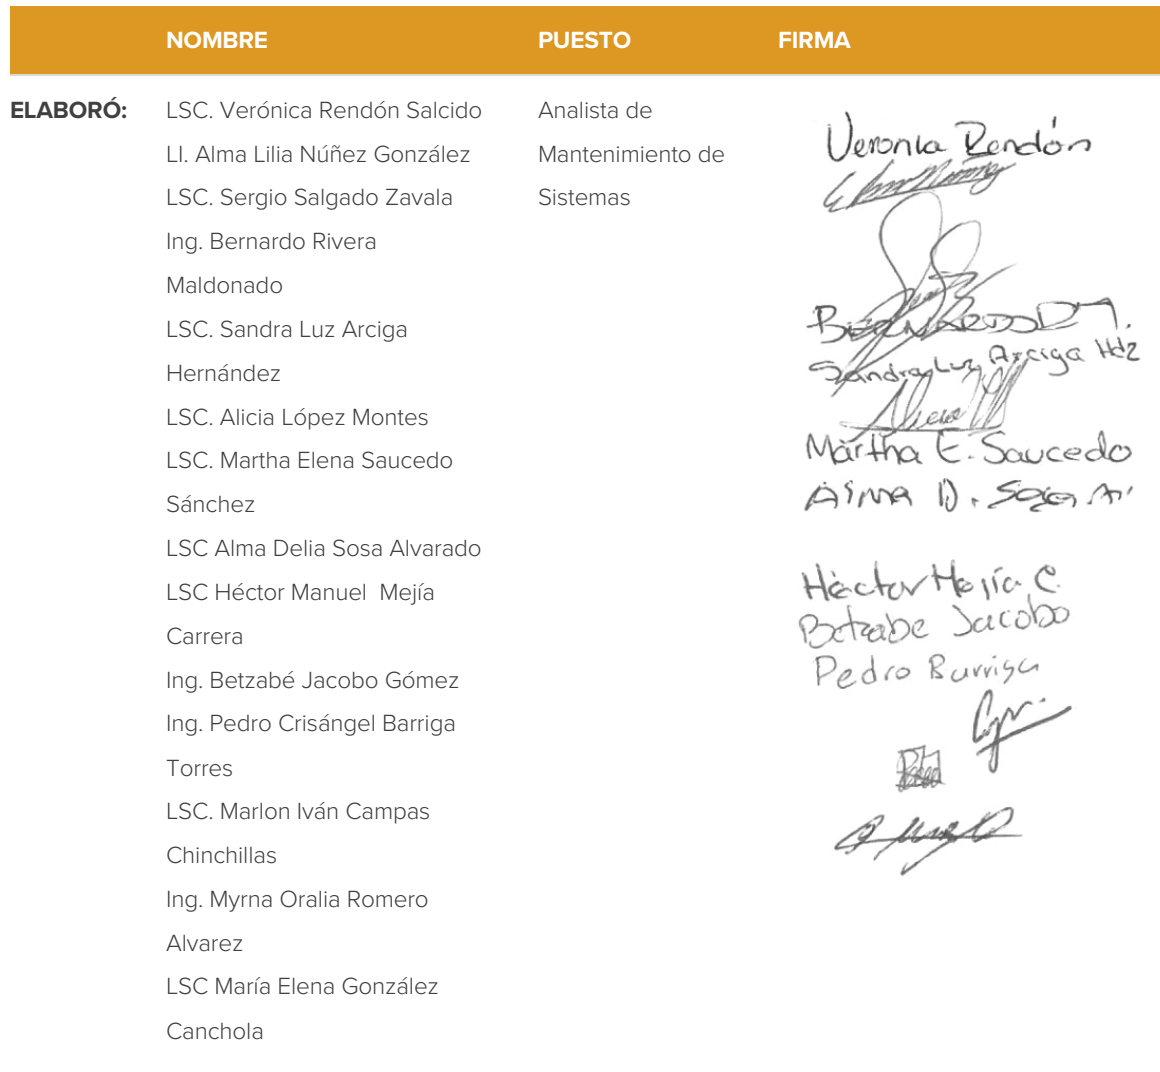 NOMBRE PUESTO FIRMA
ELABORÓ: LSC. Verónica Rendón Salcido Analista de
LI. Alma Lilia Núñez González Mantenimiento de
LSC. Sergio Salgado Zavala Sistemas
Ing. Bernardo Rivera
Maldonado
LSC. Sandra Luz Arciga
Hernández
LSC. Alicia López Montes
LSC. Martha Elena Saucedo
Sánchez
LSC Alma Delia Sosa Alvarado
LSC Héctor Manuel Mejía
Carrera
Ing. Betzabé Jacobo Gómez
Ing. Pedro Crisángel Barriga
Torres
LSC. Marlon Iván Campas
Chinchillas
Ing. Myrna Oralia Romero
Alvarez
LSC María Elena González
Canchola
Veronica Rendón
BERNARDO
Sandra Luz Arciga Hdz
Martha E. Saucedo
Alma D. Sosa
Héctor Mejía C.
Betzabe Jacobo
Pedro Barriga